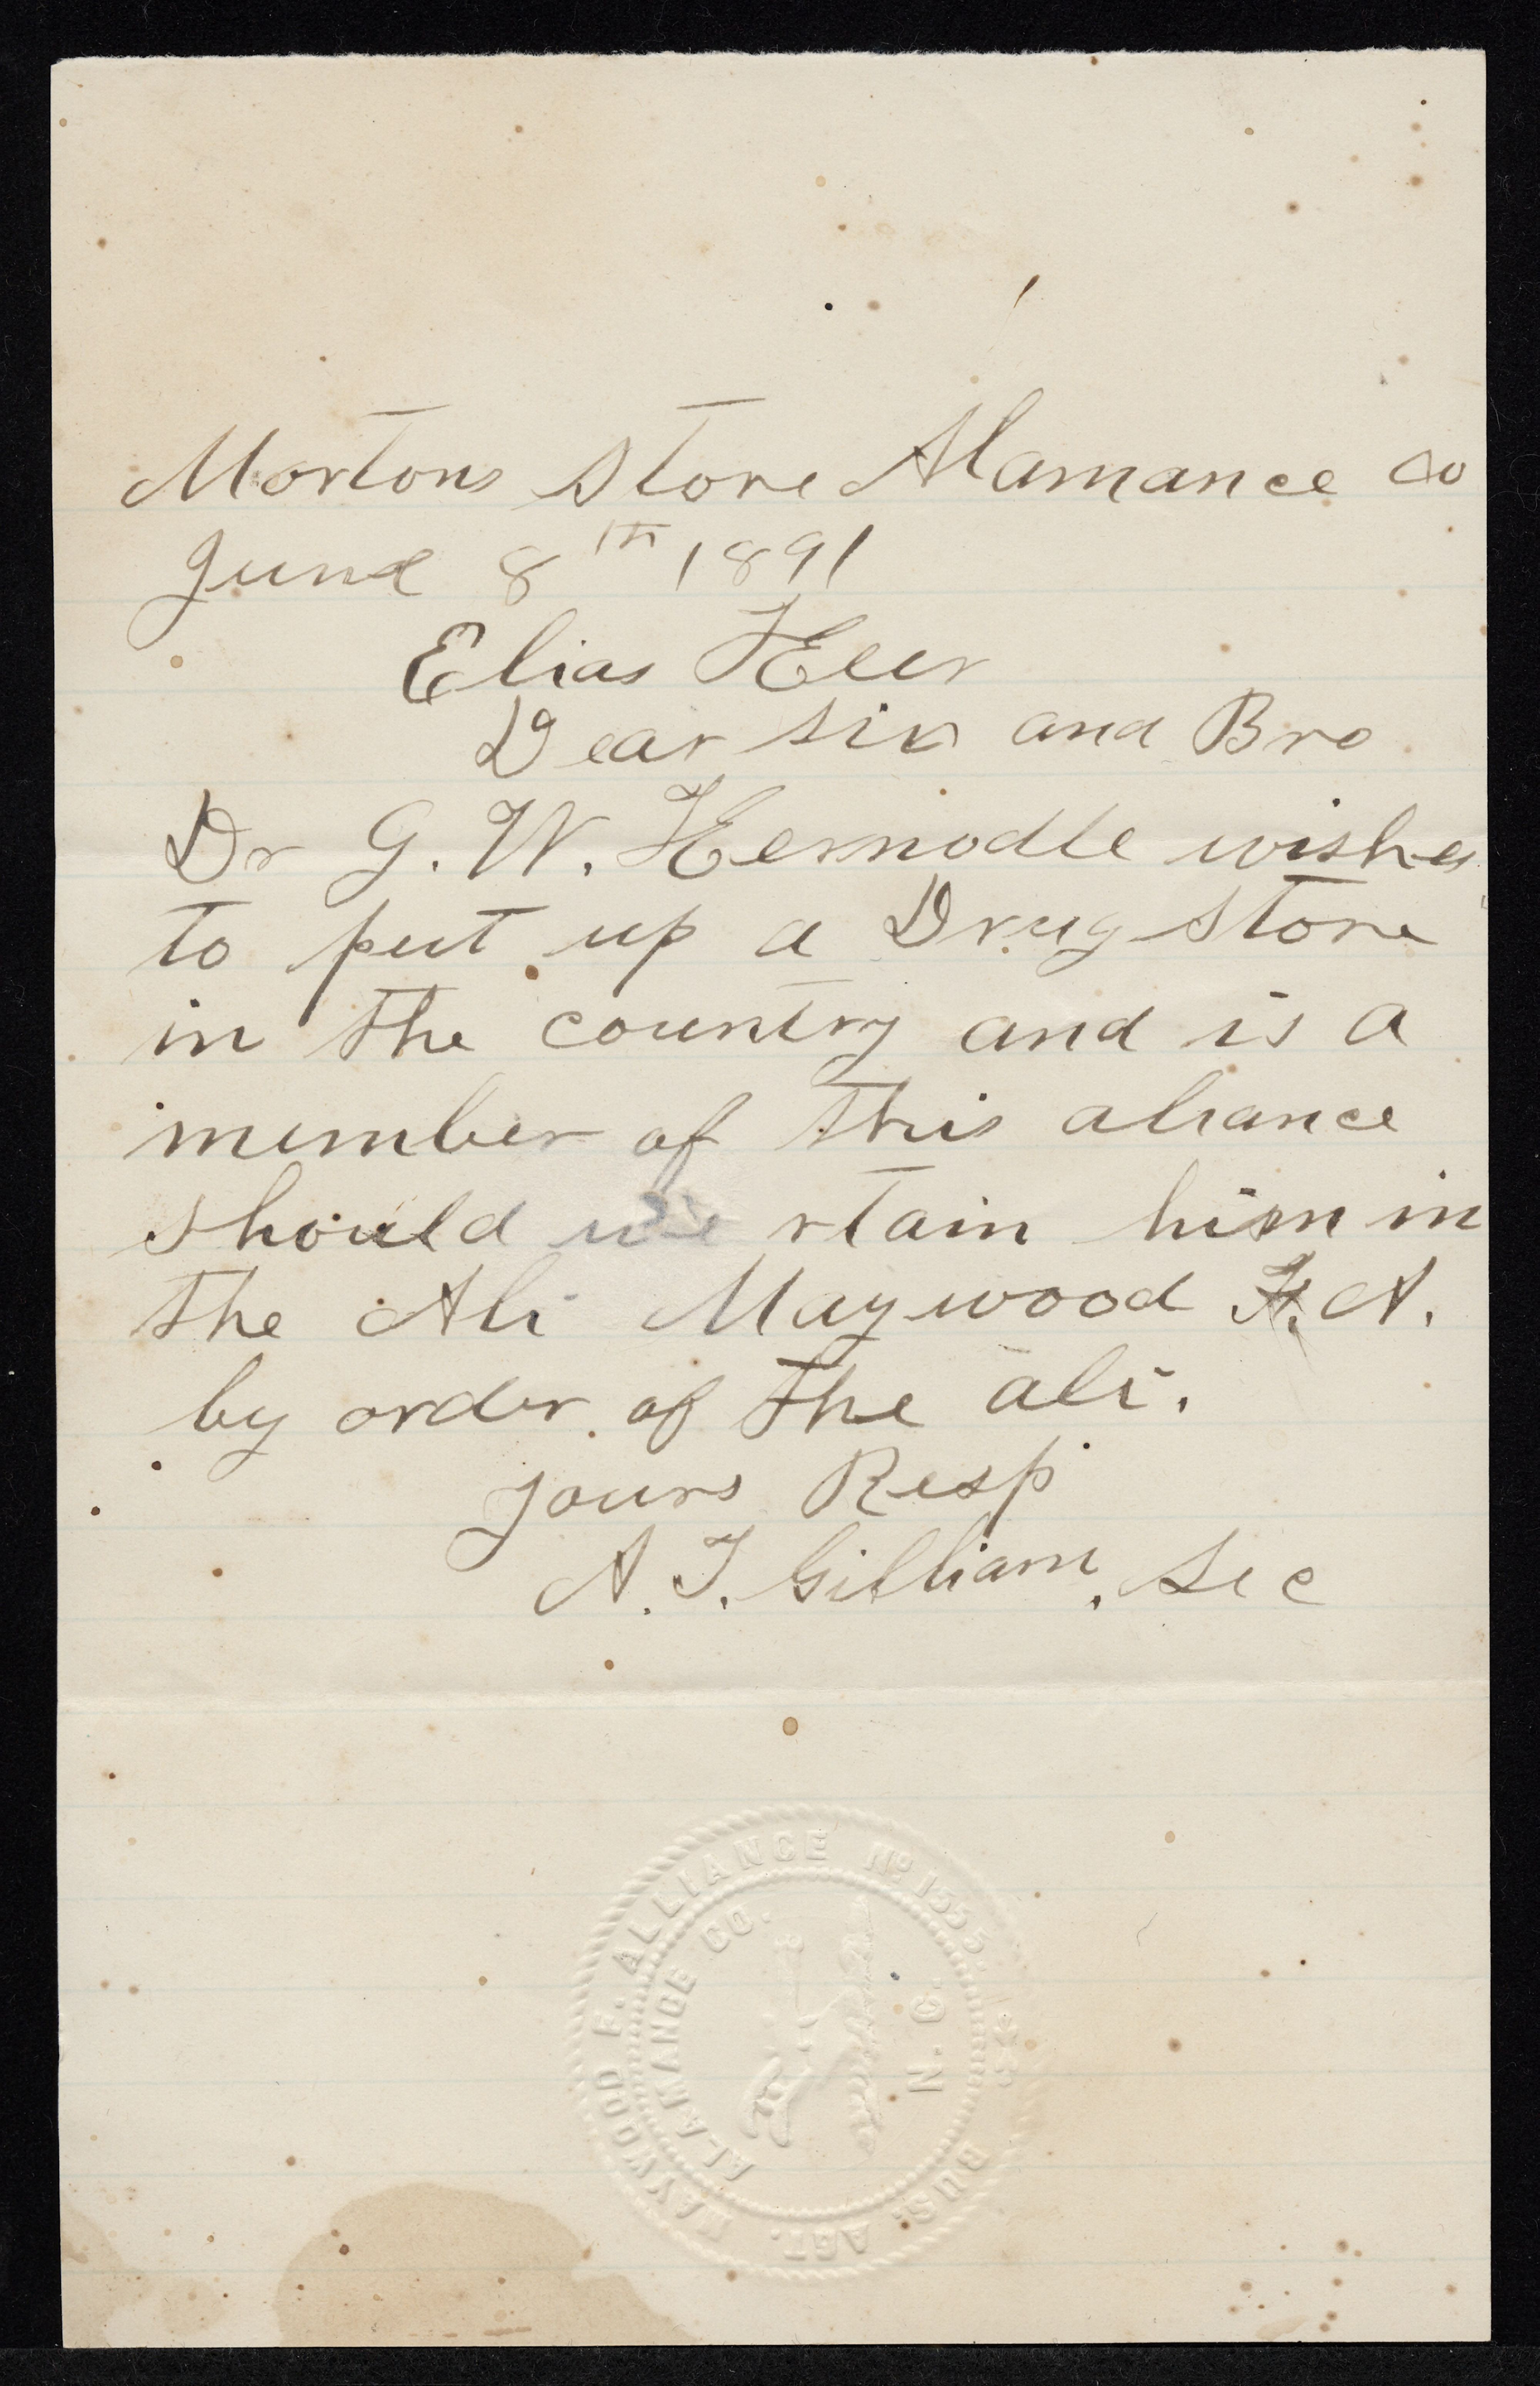 Mortons Store Alamance Co
June 8th 1891
Elias
Dear Sir and Bro
Dr G. W. Kernodle wishes
to put up a Drug store
in the country and is a
member of this aliance
should we rtain him in
the Ali Maywood F. A.
by order of the ali.
yours Resp
A. J. Gilliam, Sec
MAYWOOD F. ALLIANCE No. 1555.
BUS. AGT.
ALAMANCE CO.
N. C.